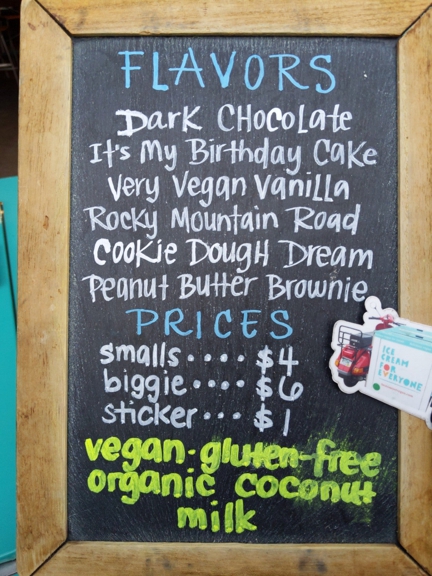 FLAVORS
Dark Chocolate
It's My Birthday Cake
Very Vegan Vanilla
Rocky Mountain Road
Cookie Dough Dream
Peanut Butter Brownie
PRICES
smalls.... $4
biggie.... $6
sticker... $1
ICE
CREAM
FOR
EVERYONE
vegan·gluten-free
organic coconut
milk